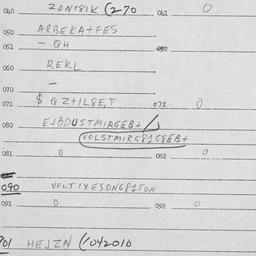 040 ZONG81K (270 042 0
050 ARBEKA+FES
051 - QH 052
060 REKL
070 -
071 $ QZ+IL8E,T 072 0
080 EJBDUSTMIAGEB+
VOLSTMIRG81G8EB+
081 0 082 0
090 VOLTIXESONG81TON
091 0 092 0
901 HEJZN (042010